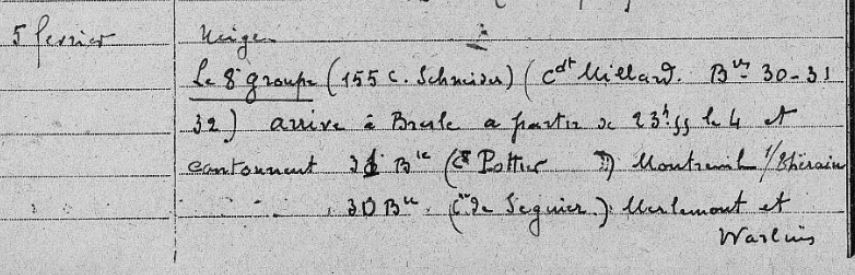 5 février Neige
Le 8e groupe (155 c. Schneider) (Cdt Millard. Bies 30-31
32) arrive à Bresle a partir de 23h55 le 4 et
cantonnent 31 Bie (Pottier) Montreuil s/Thérain
30 Bie (de Seguier.) Merlemont et
Warluis